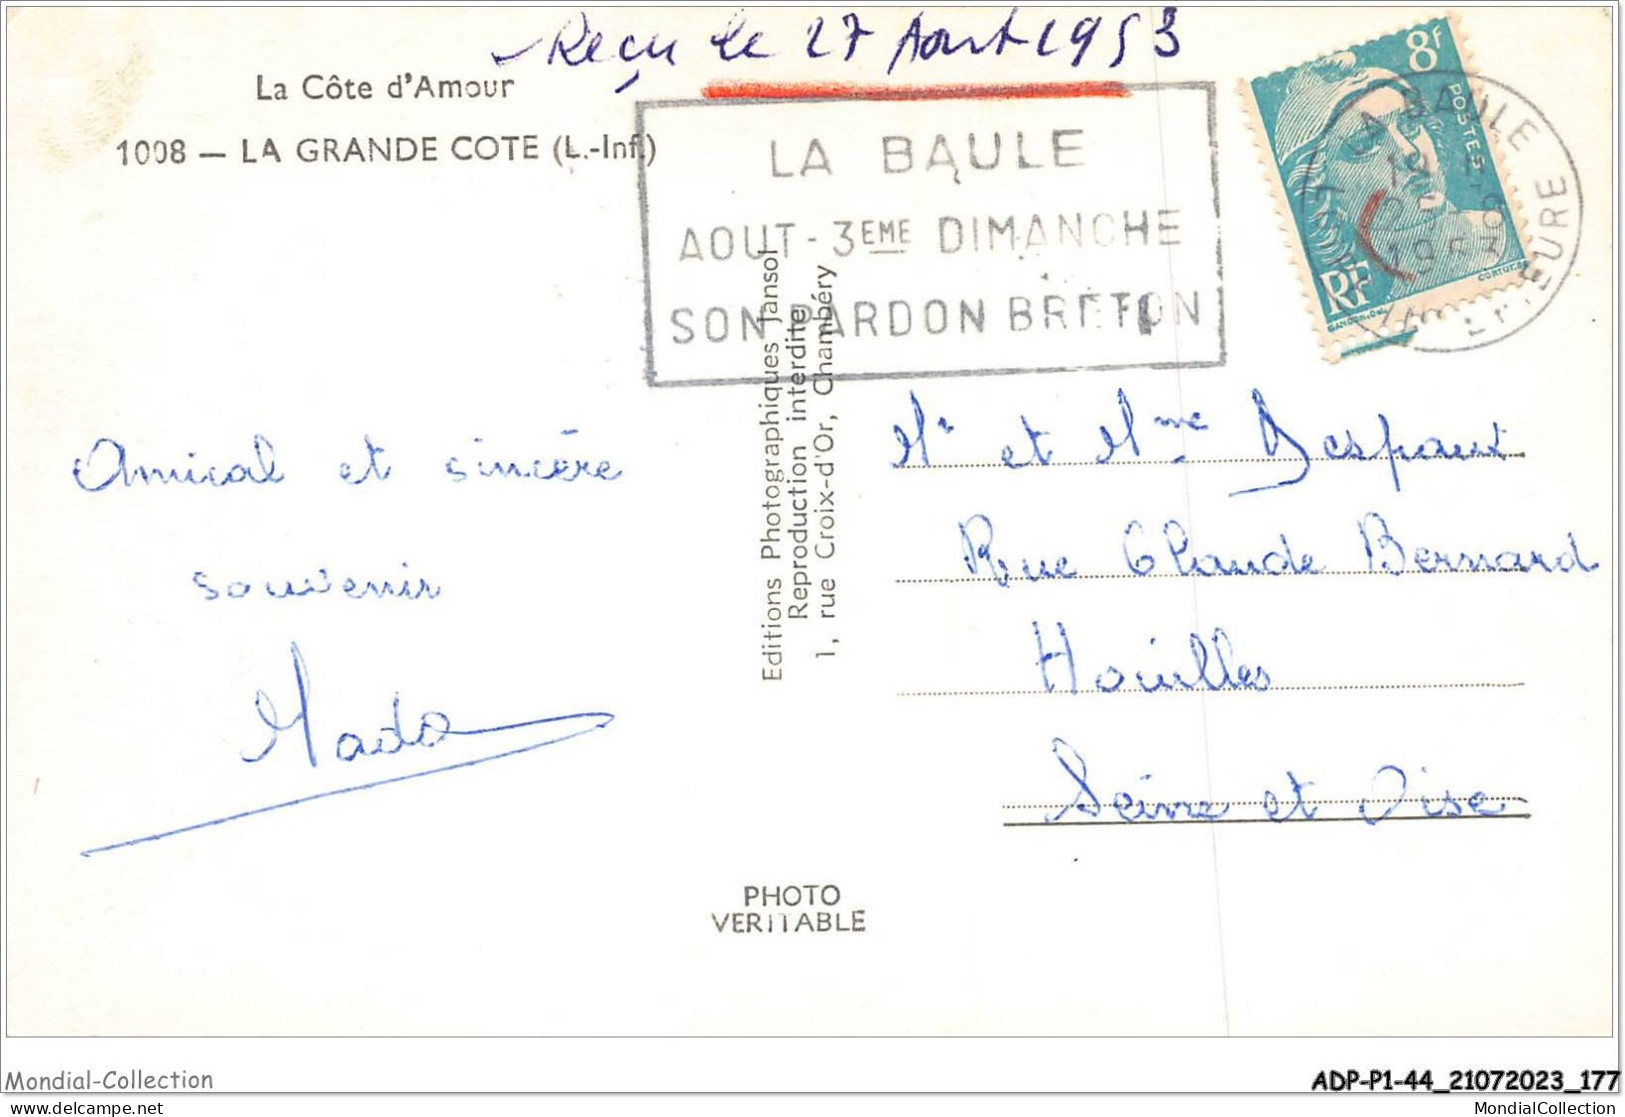 Reçu le 27 Aout 1953
La Côte d'Amour
1008 — LA GRANDE COTE (L.-Inf.)
LA BAULE
AOUT - 3EME DIMANCHE
SON PARDON BRETON
8f
POSTES
RF
GANDON.DEL.
CORTOT.SC
LA BAULE
1953
Editions Photographiques Jansol
Reproduction interdite
1, rue Croix-d'Or, Chambéry
Amical et sincère
souvenir
Mado
Mr et Mme Despaux
Rue Claude Bernard
Houilles
Seine et Oise
PHOTO
VERITABLE
Mondial-Collection
ADP-P1-44_21072023_177
delcampe.net
MondialCollection